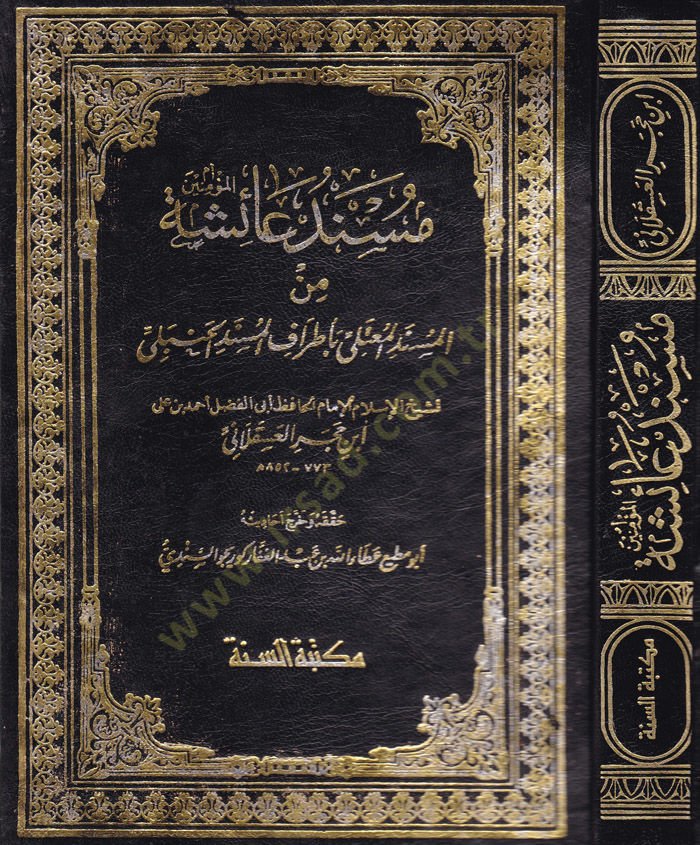 مُسْنَدُ عَائِشَة أم المؤمنين
مِنْ
المسند المعتلي بأطراف المسند الحنبلي
لشيخ الإسلام الإمام الحافظ أبي الفضل أحمد بن علي
ابن حجر العسقلاني
٧٧٣ - ٨٥٢ ه
حققه وخرج أحاديثه
أبو مطيع عطاء الله بن عبد الغفار كوريجو السندي
مكتبة السنة
ابن حجر العسقلاني
مسند عائشة أم المؤمنين
مكتبة السنة
www.kitapsad.com.tr